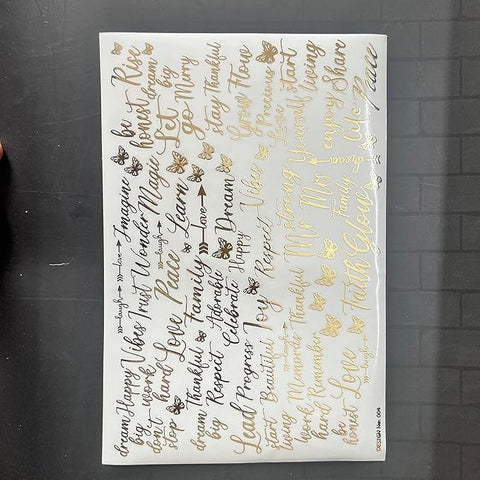 laugh love Imagine be Rise
dream Happy Vibes Trust Wonder honest dream
big work Magic Let big
don't hard Love Peace laugh Learn go Merry
stop
dream Thankful Family love stay Thankful
big Respect Adorable Dream Grow Flow
Celebrate Happy Vibes Precious
Lead Progress Joy Respect Love
start Beautiful strong Yourself start
living laugh Mr Mrs living
work Memories Thankful enjoy Share
hard Remember Family dream Life
be Love Faith Glow Peace
honest laugh
DESIGN No. 004